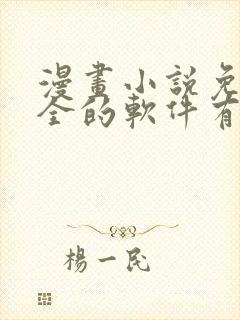 漫畫小說免
全的軟件有
楊一民